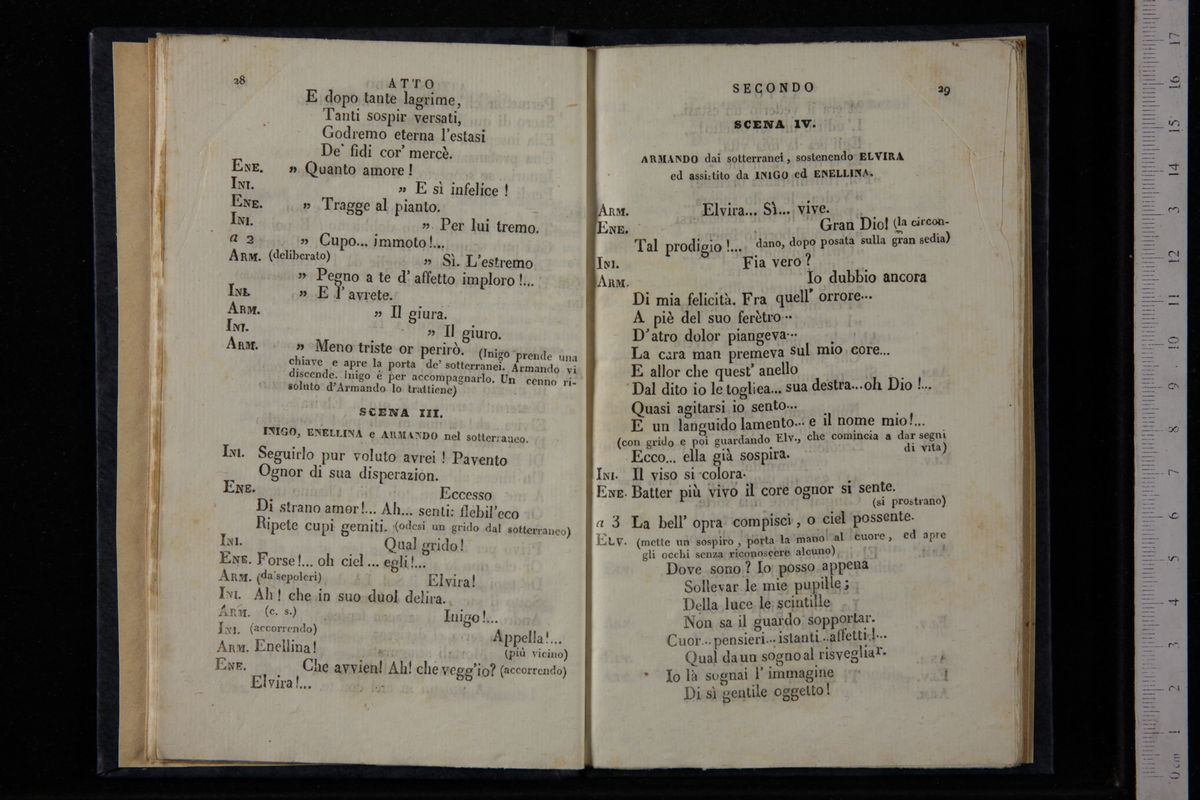 28
ATTO
E dopo tante lagrime,
Tanti sospir versati,
Godremo eterna l'estasi
De' fidi cor' mercè.
ENE. » Quanto amore !
INI. » E sì infelice !
ENE. » Tragge al pianto.
INI. » Per lui tremo.
a 2 » Cupo... immoto !...
ARM. (deliberato) » Sì. L'estremo
» Pegno a te d' affetto imploro !...
INI. » E l' avrete.
ARM. » Il giura.
INI. » Il giuro.
ARM. » Meno triste or perirò. (Inigo prende una
chiave e apre la porta de' sotterranei. Armando vi
discende. Inigo è per accompagnarlo. Un cenno ri-
soluto d'Armando lo trattiene)
SCENA III.
INIGO, ENELLINA e ARMANDO nel sotterraneo.
INI. Seguirlo pur voluto avrei ! Pavento
Ognor di sua disperazion.
ENE. Eccesso
Di strano amor !... Ah... senti: flebil'eco
Ripete cupi gemiti. (odesi un grido dal sotterraneo)
INI. Qual grido !
ENE. Forse !... oh ciel ... egli !...
ARM. (da'sepolcri) Elvira !
INI. Ah ! che in suo duol delira.
ARM. (c. s.) Inigo !...
INI. (accorrendo) Appella !...
ARM. Enellina ! (più vicino)
ENE. Che avvien! Ah! che vegg'io? (accorrendo)
Elvira !...
SECONDO
29
SCENA IV.
ARMANDO dai sotterranei, sostenendo ELVIRA
ed assistito da INIGO ed ENELLINA.
ARM. Elvira... Sì... vive.
ENE. Gran Dio! (la circon-
Tal prodigio !... dano, dopo posata sulla gran sedia)
INI. Fia vero ?
ARM. Io dubbio ancora
Di mia felicità. Fra quell' orrore...
A piè del suo ferètro...
D'atro dolor piangeva...
La cara man premeva sul mio core...
E allor che quest' anello
Dal dito io le togliea... sua destra...oh Dio !...
Quasi agitarsi io sento...
E un languido lamento... e il nome mio !...
(con grido e poi guardando Elv., che comincia a dar segni
Ecco... ella già sospira. di vita)
INI. Il viso si colora.
ENE. Batter più vivo il core ognor si sente.
(si prostrano)
a 3 La bell' opra compisci , o ciel possente.
ELV. (mette un sospiro , porta la mano al cuore , ed apre
gli occhi senza riconoscere alcuno)
Dove sono ? Io posso appena
Sollevar le mie pupille ;
Della luce le scintille
Non sa il guardo sopportar.
Cuor... pensieri... istanti... affetti !...
Qual da un sogno al risvegliar.
Io là sognai l' immagine
Di sì gentile oggetto !
0 cm 1 2 3 4 5 6 7 8 9 10 11 12 13 14 15 16 17